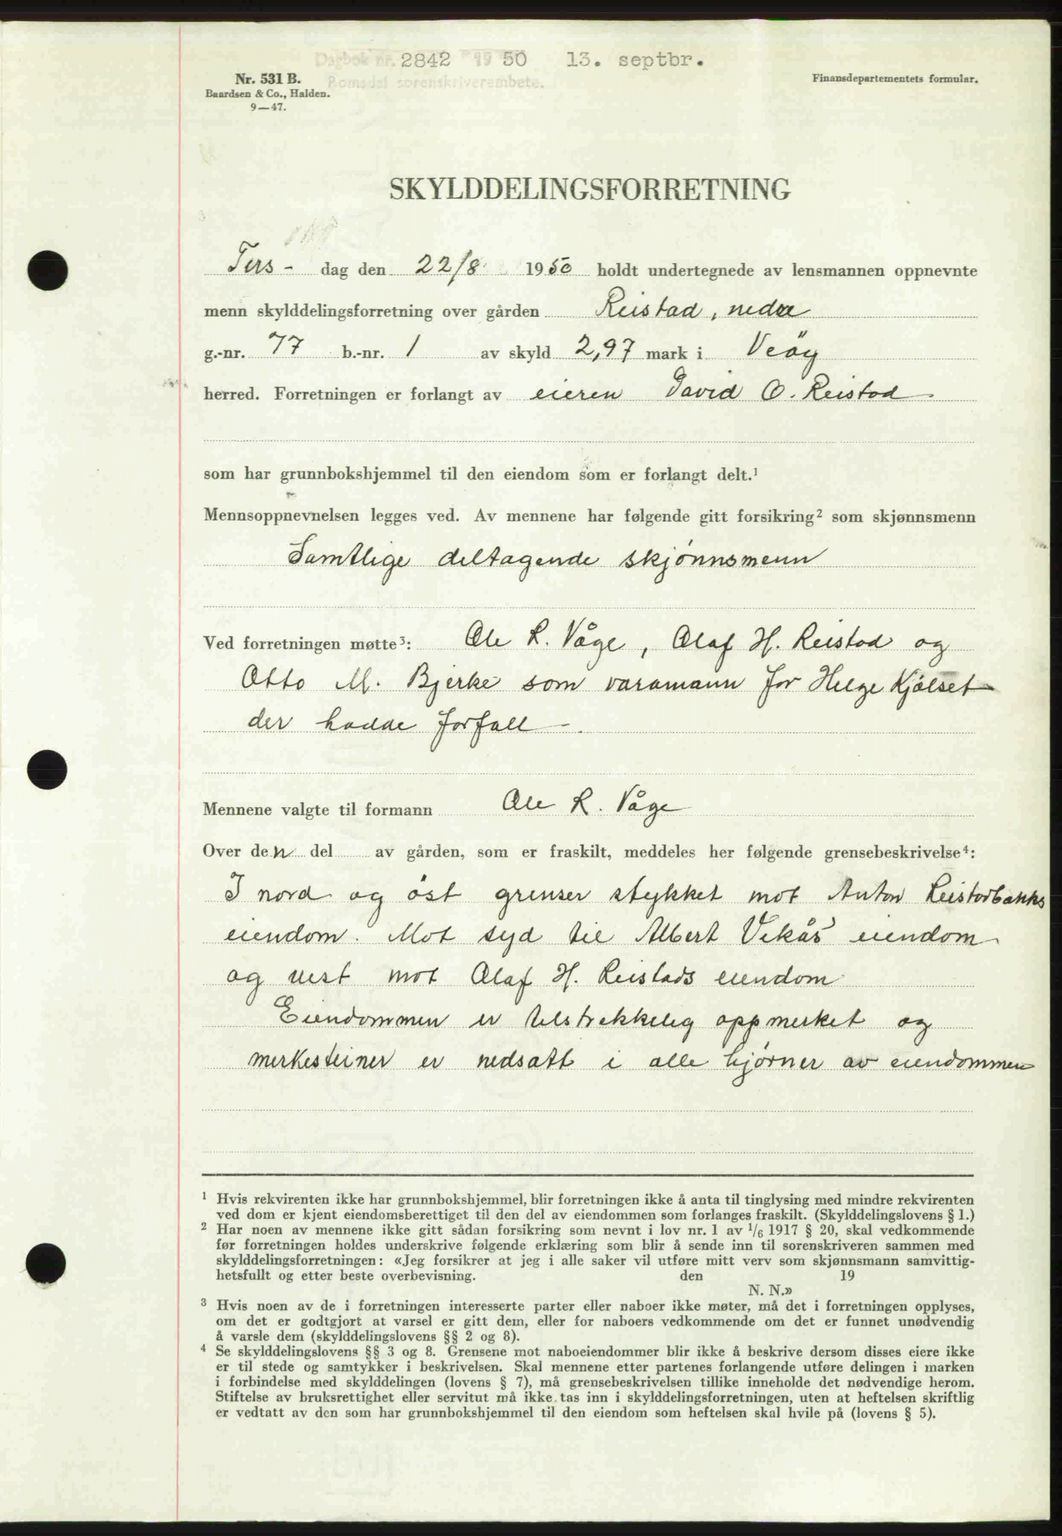 Dagbok nr. 2842 1950 13. septbr.
Romsdal sorenskriverembete.
Nr. 531 B.
Baardsen & Co., Halden.
9—47.
Finansdepartementets formular.
SKYLDDELINGSFORRETNING
Tirs- dag den 22/8 1950 holdt undertegnede av lensmannen oppnevnte
menn skylddelingsforretning over gården Reistad, nedre
g.-nr. 77 b.-nr. 1 av skyld 2,97 mark i Veöy
herred. Forretningen er forlangt av eieren David O. Reistad
som har grunnbokshjemmel til den eiendom som er forlangt delt.¹
Mennsoppnevnelsen legges ved. Av mennene har følgende gitt forsikring² som skjønnsmenn
Samtlige deltagende skjönnsmenn
Ved forretningen møtte³: Ole R. Våge, Olaf H. Reistad og
Otto M. Bjerke som varamann for Helge Kjölset
der hadde forfall -.
Mennene valgte til formann Ole R. Våge
Over den del av gården, som er fraskilt, meddeles her følgende grensebeskrivelse⁴:
I nord og öst grenser stykket mot Anton Reistadbakks
eiendom. Mot syd til Albert Vikås eiendom
og vest mot Olaf H. Reistads eiendom
Eiendommen er tilstrekkelig oppmerket og
merkesteiner er nedsatt i alle hjörner av eiendommen
¹ Hvis rekvirenten ikke har grunnbokshjemmel, blir forretningen ikke å anta til tinglysing med mindre rekvirenten
ved dom er kjent eiendomsberettiget til den del av eiendommen som forlanges fraskilt. (Skylddelingslovens § 1.)
² Har noen av mennene ikke gitt sådan forsikring som nevnt i lov nr. 1 av ¹/₆ 1917 § 20, skal vedkommende
før forretningen holdes underskrive følgende erklæring som blir å sende inn til sorenskriveren sammen med
skylddelingsforretningen: «Jeg forsikrer at jeg i alle saker vil utføre mitt verv som skjønnsmann samvittig-
hetsfullt og etter beste overbevisning. den 19
N. N.»
³ Hvis noen av de i forretningen interesserte parter eller naboer ikke møter, må det i forretningen opplyses,
om det er godtgjort at varsel er gitt dem, eller for naboers vedkommende om det er funnet unødvendig
å varsle dem (skylddelingslovens §§ 2 og 8).
⁴ Se skylddelingslovens §§ 3 og 8. Grensene mot naboeiendommer blir ikke å beskrive dersom disses eiere ikke
er til stede og samtykker i beskrivelsen. Skal mennene etter partenes forlangende utføre delingen i marken
i forbindelse med skylddelingen (lovens § 7), må grensebeskrivelsen tillike inneholde det nødvendige herom.
Stiftelse av bruksrettighet eller servitut må ikke tas inn i skylddelingsforretningen, uten at heftelsen skriftlig
er vedtatt av den som har grunnbokshjemmel til den eiendom som heftelsen skal hvile på (lovens § 5).